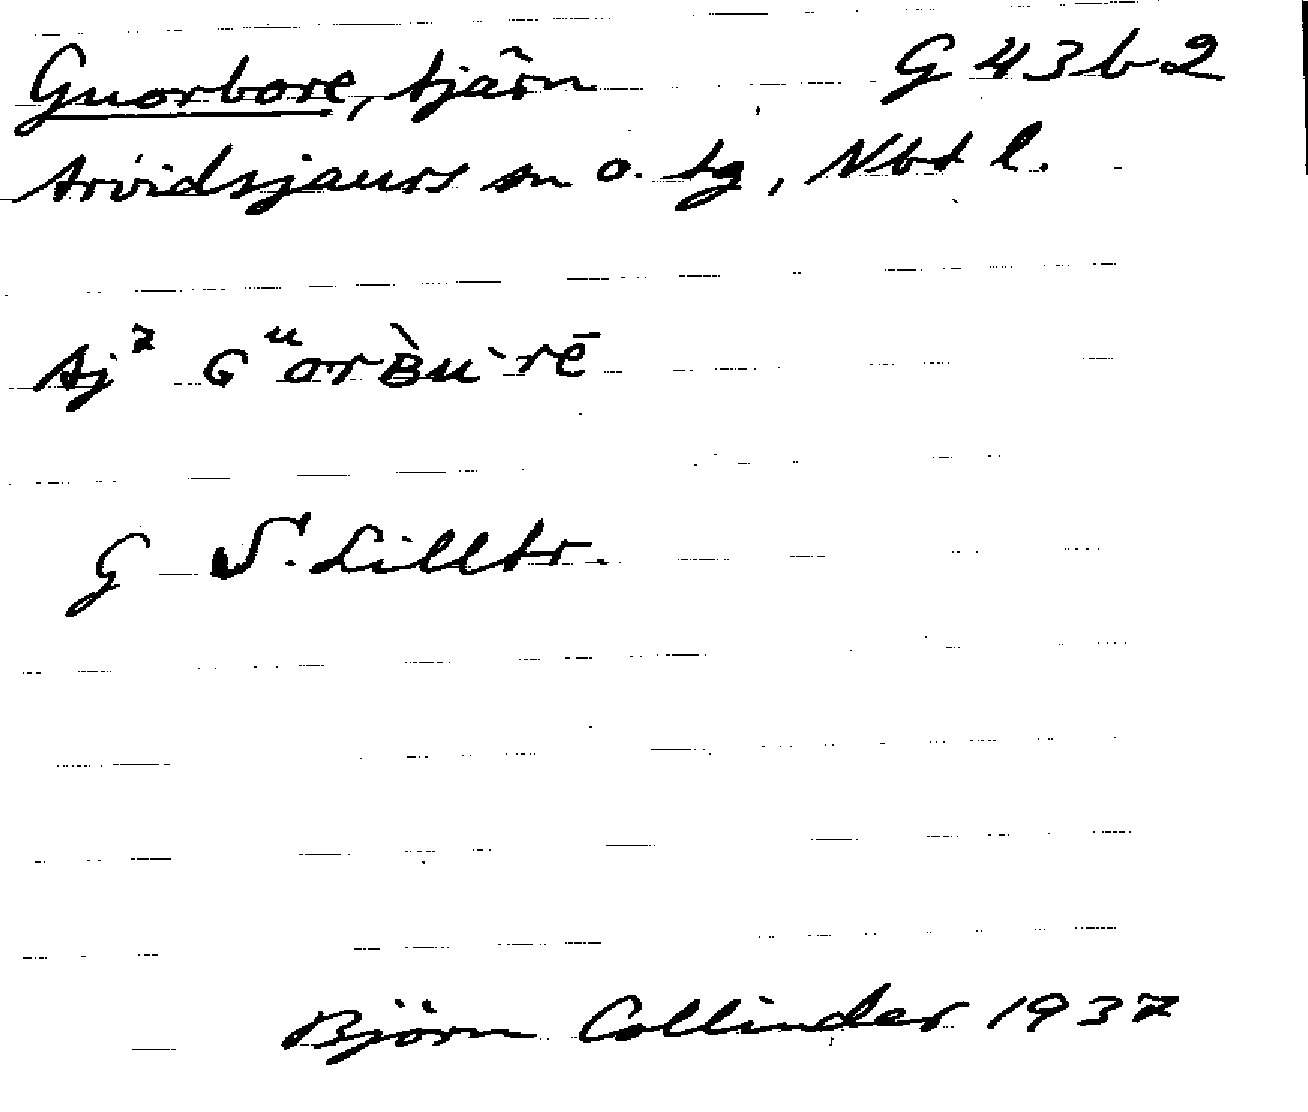 Guorbore, tjärn G 43b2
Arvidsjaurs sn o. tg, Nbt l.
Aj⁷ Gᵘorʙ̀u`rē
G S. Lilltr.
Björn Collinder 1937